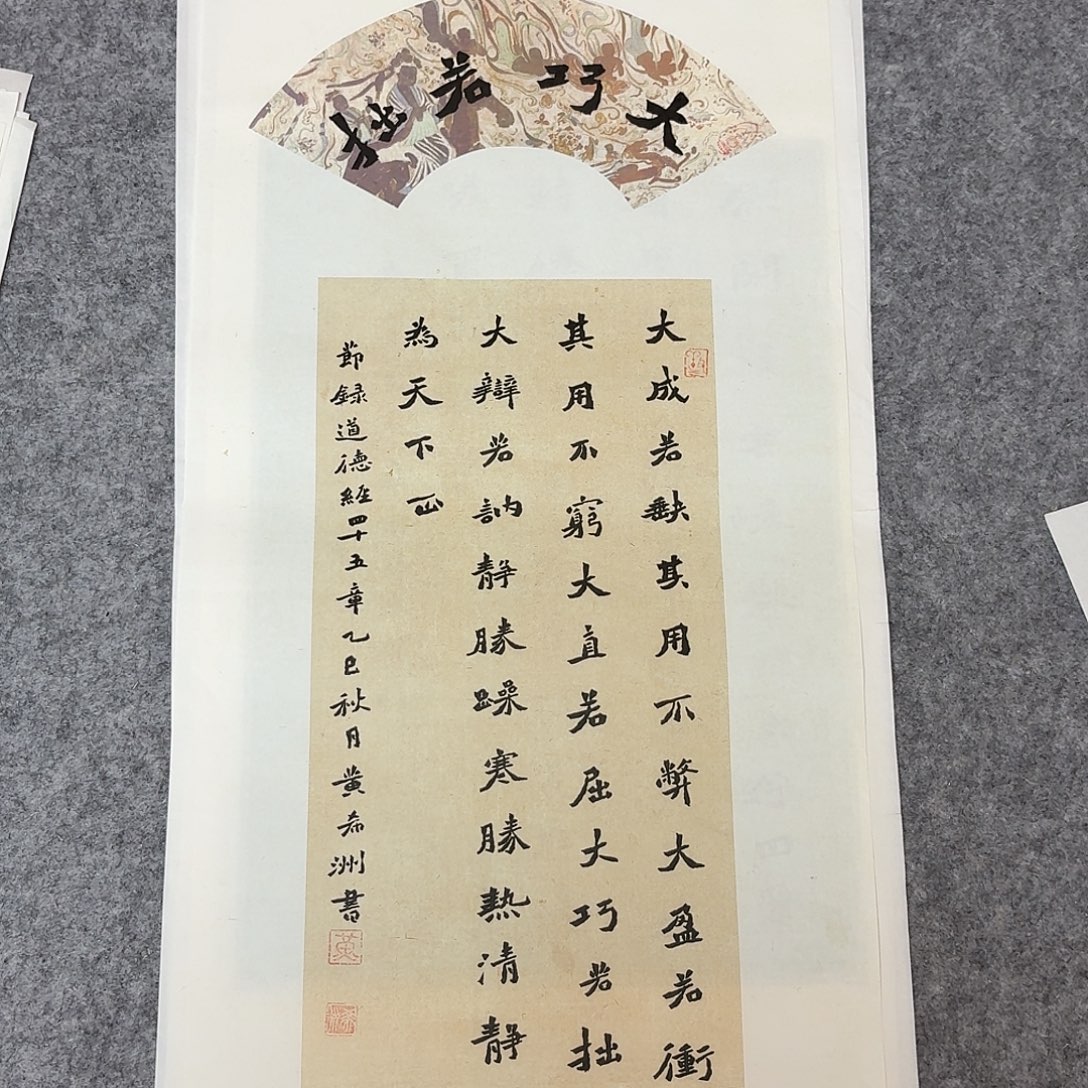 大巧若拙
大成若缺其用不弊大盈若衝
其用不窮大直若屈大巧若拙
大辯若訥静勝躁寒勝熱清静
為天下正
節録道德經四十五章乙巳秋月黄希洲書
黄